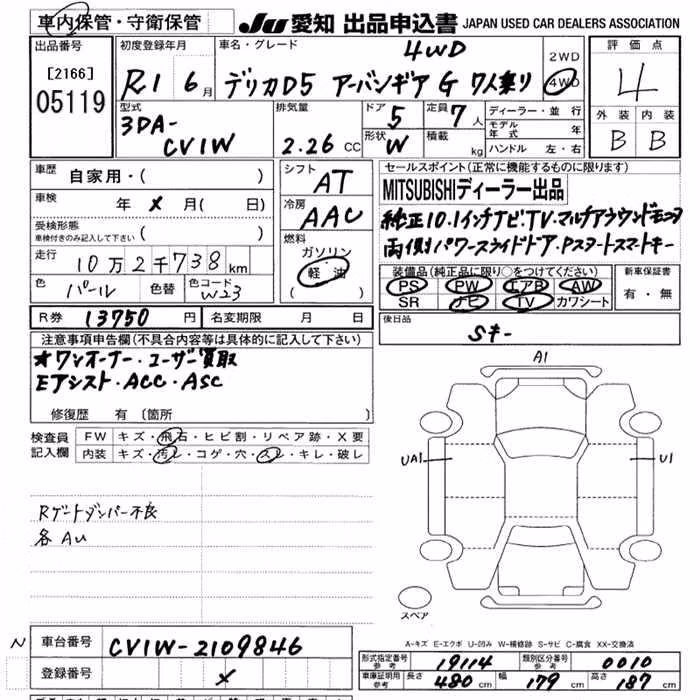 車内保管・守衛保管
JU 愛知 出品申込書 JAPAN USED CAR DEALERS ASSOCIATION
出品番号
[2166]
05119
初度登録年月
R1 6月
車名・グレード
4WD
デリカD5 アーバンギア G 7人乗り
2WD
4WD
評価点
4
外装 内装
B B
型式
3DA-
CV1W
排気量
2.26 CC
ドア 5
形状 W
定員 7人
積載 kg
ディーラー・並行
モデル年式 年
ハンドル 左・右
車歴 自家用・( )
車検 年 メ 月( 日)
受検形態
車検付きのみ記入して下さい ( )
走行 10万2千738km
色 パール 色替 色コード W23
シフト AT
冷房 AAC
燃料
ガソリン
軽油
( )
セールスポイント(正常に機能するものに限ります)
MITSUBISHIディーラー出品
純正10.1インチナビTV.マルチアラウンドモニタ
両側パワースライドドア.Pスタートスマートキー
装備品(純正品に限り○をつけてください)
PS PW エアB AW
SR ナビ TV カワシート
新車保証書
有・無
R券 13750円 名変期限 月 日
後日品
Sキー
注意事項申告欄(不具合内容等は具体的に記入して下さい)
★ワンオーナー・ユーザー買取
Eアシスト・ACC・ASC
修復歴 有 〔箇所 〕
検査員
記入欄
FW キズ・飛石・ヒビ割・リペア跡・X要
内装 キズ・汚レ・コゲ・穴・スレ・キレ・破レ
Rゲートダンパー不良
各AU
A1
UA1
U1
スペア
A-キズ E-エクボ U-凹み W-補修跡 S-サビ C-腐食 XX-交換済
N
車台番号 CV1W-2109846
登録番号 メ
形式指定番号 参考 19114 類別区分番号 参考 0010
車庫証明用 参考 長さ 480 cm 幅 179 cm 高さ 187 cm